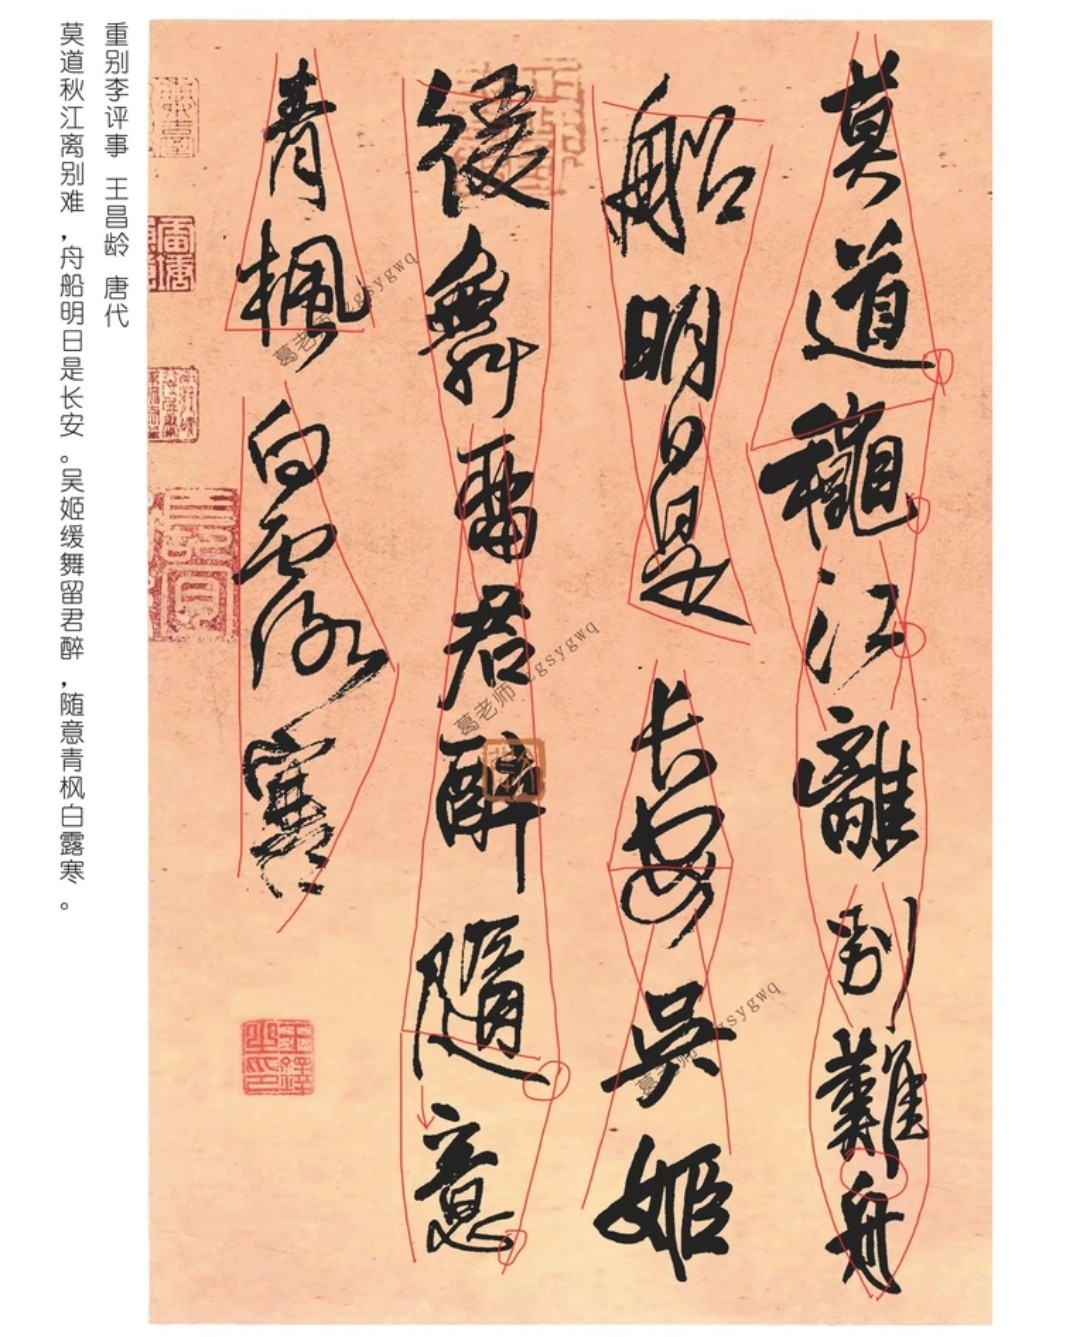 莫道穐江離別難舟
船明日是長安吳姬
緩舞留君醉隨意
青楓白露寒
重别李评事 王昌龄 唐代
莫道秋江离别难，舟船明日是长安。吴姬缓舞留君醉，随意青枫白露寒。
葛老师 zgsygwq
葛老师 zgsygwq
葛老师 zgsygwq